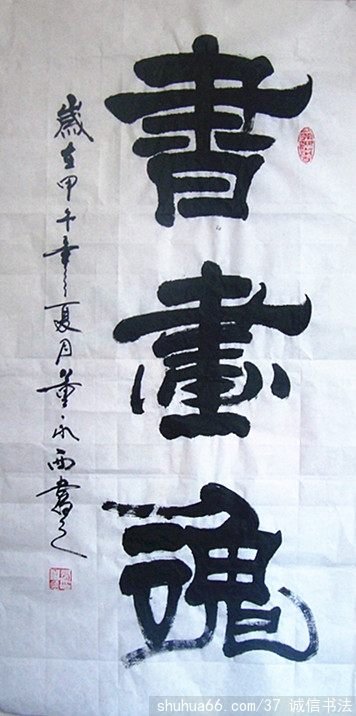 書畫魂
歲在甲午年之夏月董永西書之
shuhua66.com/37 诚信书法